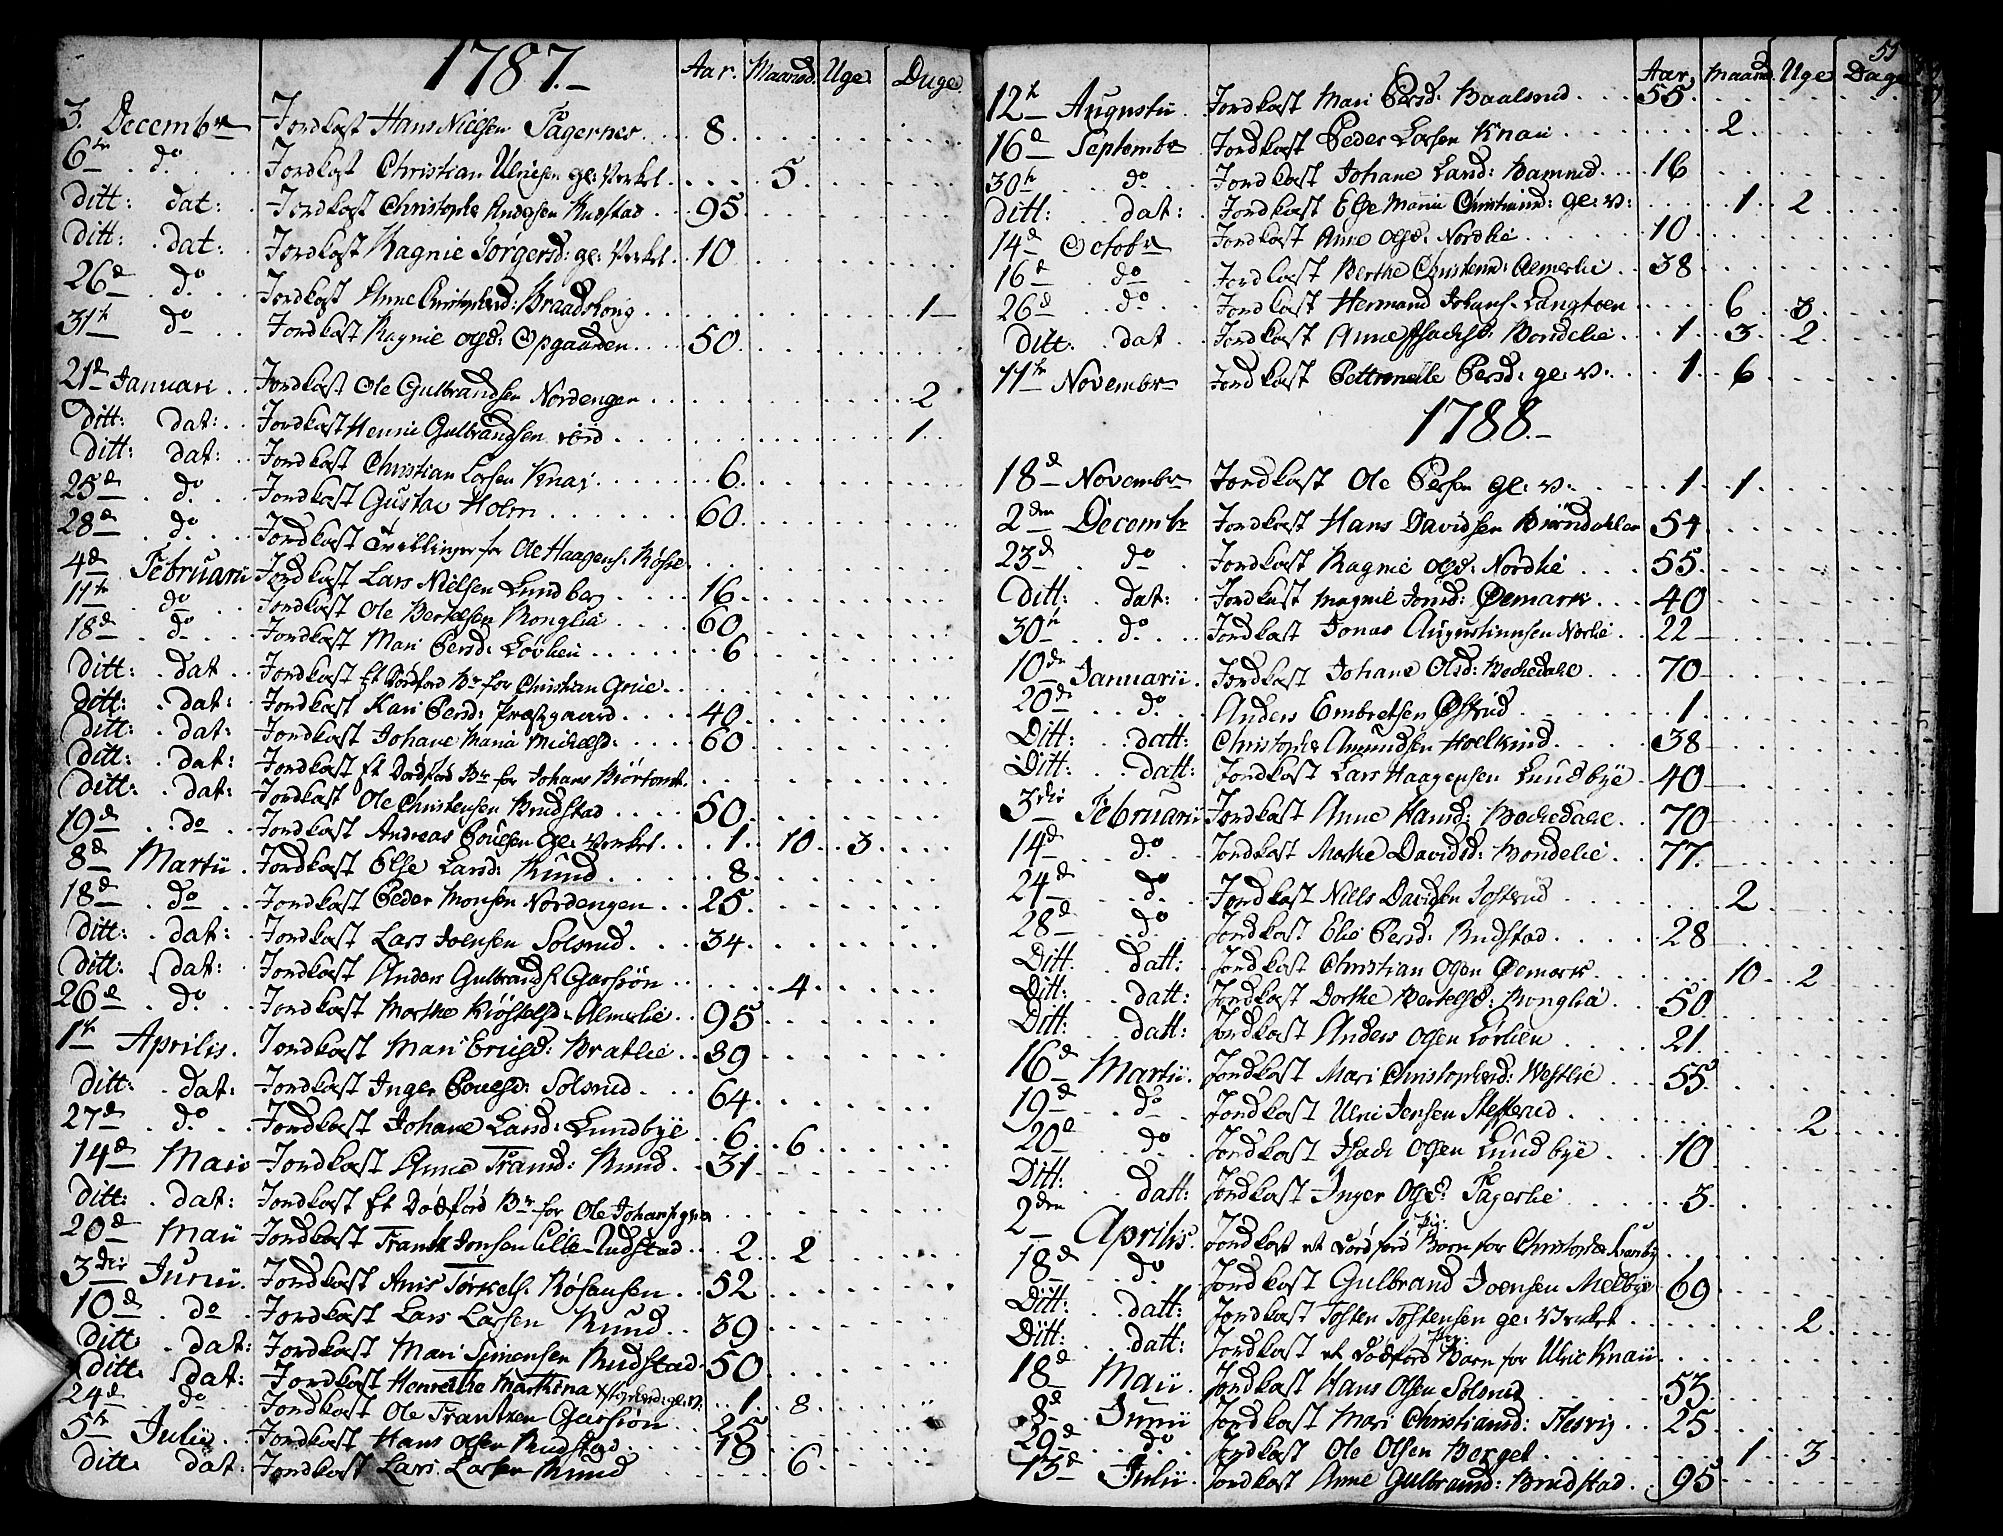 1787.
Aar. Maaned. Uge. Dage.
3. Decembr Jordkast Hans Nielsen Fagernes 8.
6te do Jordkast Christian Ulrichsen gl: Verket 5.
Ditt: dat: Jordkast Christopher Rudstad 95.
Ditt: dat: Jordkast Ragnie Jørgensd: gl: Verket 10
26de do Jordkast Anne Christophersd: Braadskong 1
31te do Jordkast Ragnie Olsd: Opgaarden 50.
21de Januari Jordkast Ole Gulbrandsen Nordengen 2
Ditt: dat: Jordkast Henric Gulbrandsen ibid 1.
Ditt: dat: Jordkast Christian Larsen Knai 6.
25de do Jordkast Gustav Holm 60.
28de do Jordkast Tvillinger for Ole Haagens:
4de Februarii Jordkast Lars Nielsen Lundberg 16.
11te do Jordkast Ole Bertelsen Ronglia 60
18de do Jordkast Mari Persd: Løvlien 6
Ditt: dat Jordkast Et Dødfød Bn for Christian Grue.
Ditt: dat: Jordkast Kari Persd: Præstgaard 40.
Ditt: dat: Jordkast Johane Maria Michelsd: 60
Ditt: dat: Jordkast Et Dødfød Bn for Johans
Ditt: dat: Jordkast Ole Christensen Rudstad 50.
19de do Jordkast Andreas Poulsen gl: Verket 1. 10 3
8de Martii Jordkast Else Larsd: Rund 8.
18de do Jordkast Peder Monsen Nordengen 25.
Ditt: dat: Jordkast Lars Joensen Solsrud 34.
Ditt: dat: Jordkast Anders Gulbrands: Garsiøn 4
26de do Jordkast Marthe Almerlie 95
1te Aprilis. Jordkast Mari Erigsd: Bratlie 39
Ditt: dat: Jordkast Inger Pouelsd: Solsrud 64.
27de do Jordkast Johane Larsd: Lundbye 6. 6
14de Maii Jordkast Anne Framsd: Rund 31
Ditt: dat: Jordkast Et Dødfød Bn for Ole Johans:
20de Maii Jordkast Frantz Jonsen Lille-Rudstad 2. 2
3die Junii. Jordkast Anis Torkels: Røsansen 52
10de do Jordkast Lars Larsen Rund 39
Ditt dat: Jordkast Mari Simensen Rudstad 50
Ditt: dat: Jordkast Henrethe Marthina gl: V: 1. 8
24de do Jordkast Ole Frantzen Garsiøn 25
5te Julii Jordkast Hans Olsen Rudstad 18
Ditto dat: Jordkast Lars Larsen Rund 6
55
Aar. Maaned. Uge Dage
12te Augustii Jordkast Mari Persd: Baalsrud 55.
16de Septembr Jordkast Peder Larsen Knai 2
30te do Jordkast Johane Larsd: 16
Ditt: dat: Jordkast Else Maria Christiansd: gl: V: 1 2
14de Octobr Jordkast Anne Olsd: Nordlie 10
16de do Jordkast Berthe Christensd: Almerlie 38
26de do Jordkast Hermand Johans: Langtoen 6 3
Ditt: dat Jordkast Anne Isachsd: Bondelie 1. 3 2
11te Novembr Jordkast Pettronelle Persd: gl: V: 1. 6
1788.
18de Novembr Jordkast Ole Persen gl: V: 1. 1.
2den Decembr Jordkast Hans Davidsen Biørndahlen 54
23de do Jordkast Ragnie Olsd: Nordlie 55
Ditt: dat: Jordkast Magnil Jonsd: Oemark 40
30te do Jordkast Jonas Augustinusen Norlie 22
10de Januarii Jordkast Johane Olsd: Bochedale 70
20de do Anders Embretsen Østrud 1.
Ditt: datt: Christopher Amundsen Hoelkind 38
Ditt: datt: Jordkast Lars Haagensen Lundbye 40
3die Februarii Jordkast Anne Hansd: Bochedale 70
14de do Jordkast Marthe Davidsd: Bondelie 77.
24de do Jordkast Niels Davidsen 2
28de do Jordkast Elie Persd: Rudstad 28
Ditt. datt: Jordkast Christian Olsen Oemark 10 2
Ditt: datt: Jordkast Dorthe Bertelsd: Ronglia 50
Ditt: datt: Jordkast Anders Olsen Lovlien 21.
16de Martii. Jordkast Mari Christophersd: Westlie 55
19de do Jordkast Ulri Jensen 2
20de do Jordkast Isach Olsen Lundbye 10
Ditt: datt: Jordkast Inger Olsd: Fagerlie 3
2den Aprilis. Jordkast et Dødfød Pig: Barn for Christopher
18de do Jordkast Gulbrand Joensen Melbye 69
Ditt: datt: Jordkast Tosten Tostensen gl: Verket 2
Ditt: datt: Jordkast et Dødfød Barn for Ulric Knaii
18de Maii. Jordkast Hans Olsen Solsrud 53
8de Junii Jordkast Mari Christiansd: Flesvig 25
29de do Jordkast Ole Olsen Berget 1 3
13de Julii Jordkast Anne Gulbransd: Rudstad 95